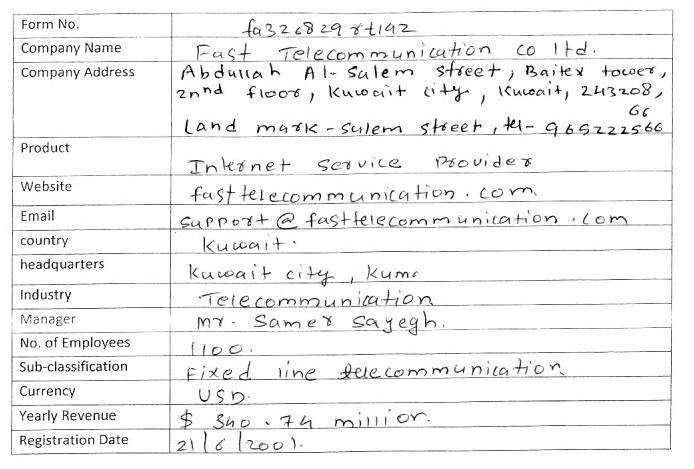 Form No. fa326829rt192
Company Name Fast Telecommunication co ltd.
Company Address Abdullah Al-Salem street, Baitex tower,
2nnd floor, Kuwait city, Kuwait, 243208,
66
Land mark-Sulem street, tel-965222566
Product Internet Service Provider
Website fasttelecommunication.com.
Email support@fasttelecommunication.com
country Kuwait.
headquarters Kuwait city, Kuma
Industry Telecommunication
Manager Mr. Samer Sayegh.
No. of Employees 1100.
Sub-classification Fixed line telecommunication
Currency USD.
Yearly Revenue $ 340.74 million.
Registration Date 21/6/2001.